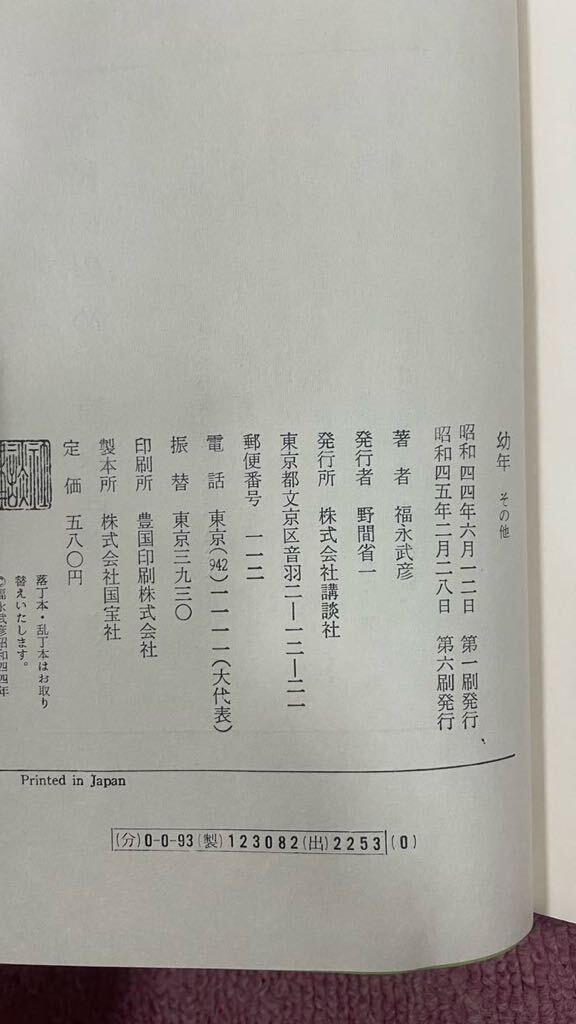 幼年 その他
昭和四四年六月一二日 第一刷発行
昭和四五年二月二八日 第六刷発行
著者 福永武彦
発行者 野間省一
発行所 株式会社講談社
東京都文京区音羽二―一二―二一
郵便番号 一一二
電話 東京(942)一一一一(大代表)
振替 東京三九三〇
印刷所 豊国印刷株式会社
製本所 株式会社国宝社
定価 五八〇円
落丁本・乱丁本はお取り
替えいたします。
©福永武彦昭和四四年
Printed in Japan
(分)0-0-93(製)123082(出)2253(0)